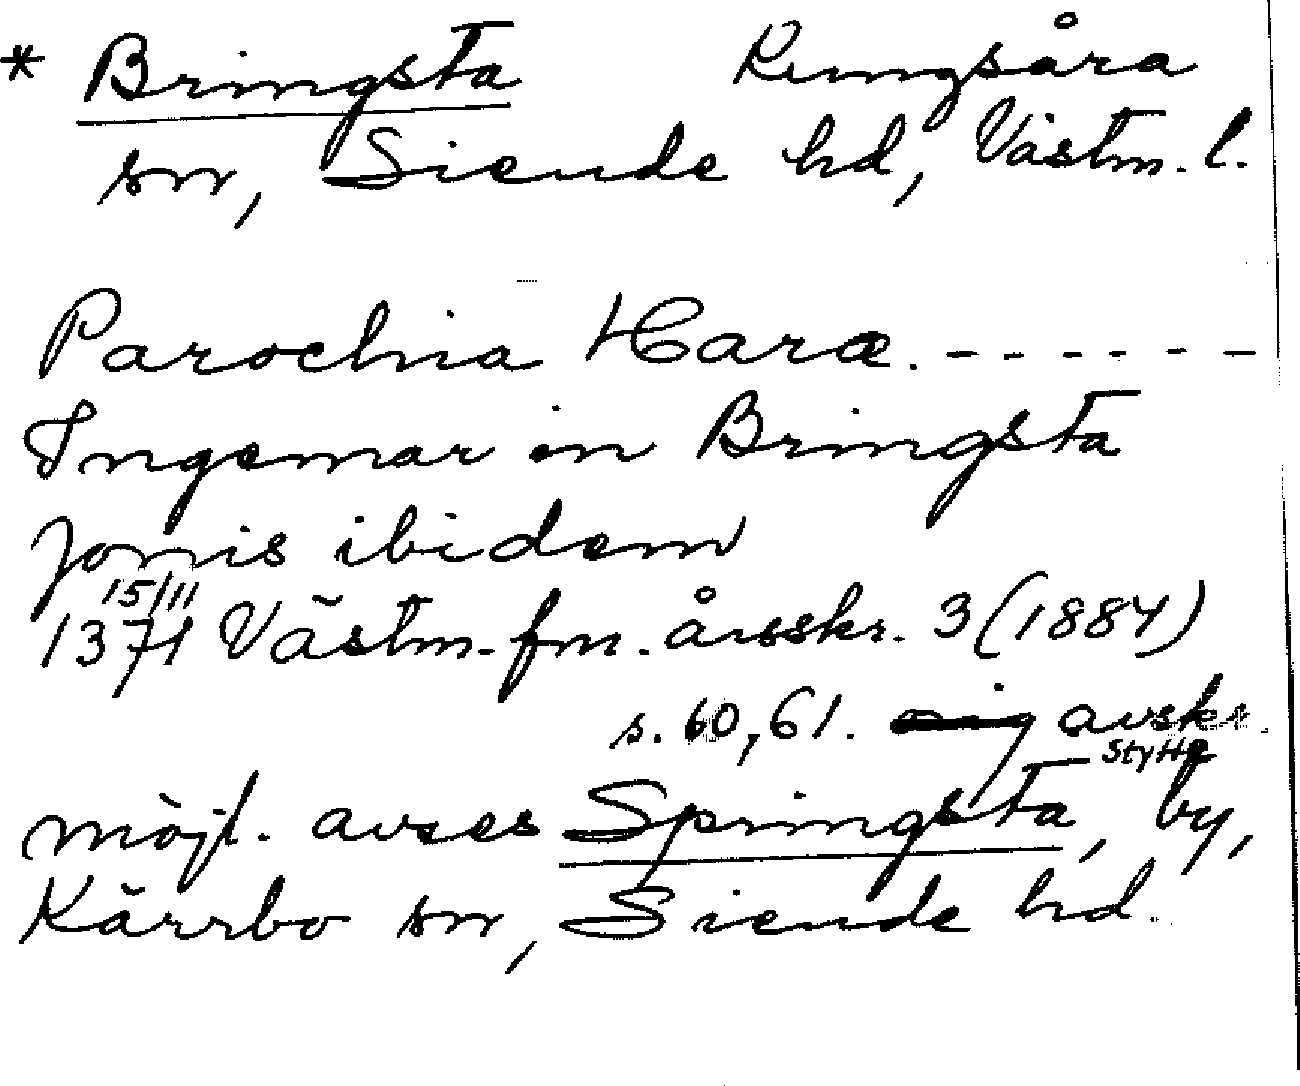 * Bringsta Kungsåra
sn, Siende hd, Västm. l.
Parochia Haræ. - - - - - -
Ingemar in Bringsta
Jonis ibidem
15/11
1371 Västm. fm. årsskr. 3 (1884)
s. 60, 61. avskr.
Styffe
möjl. avses Springsta, by,
Kärrbo sn, Siende hd.